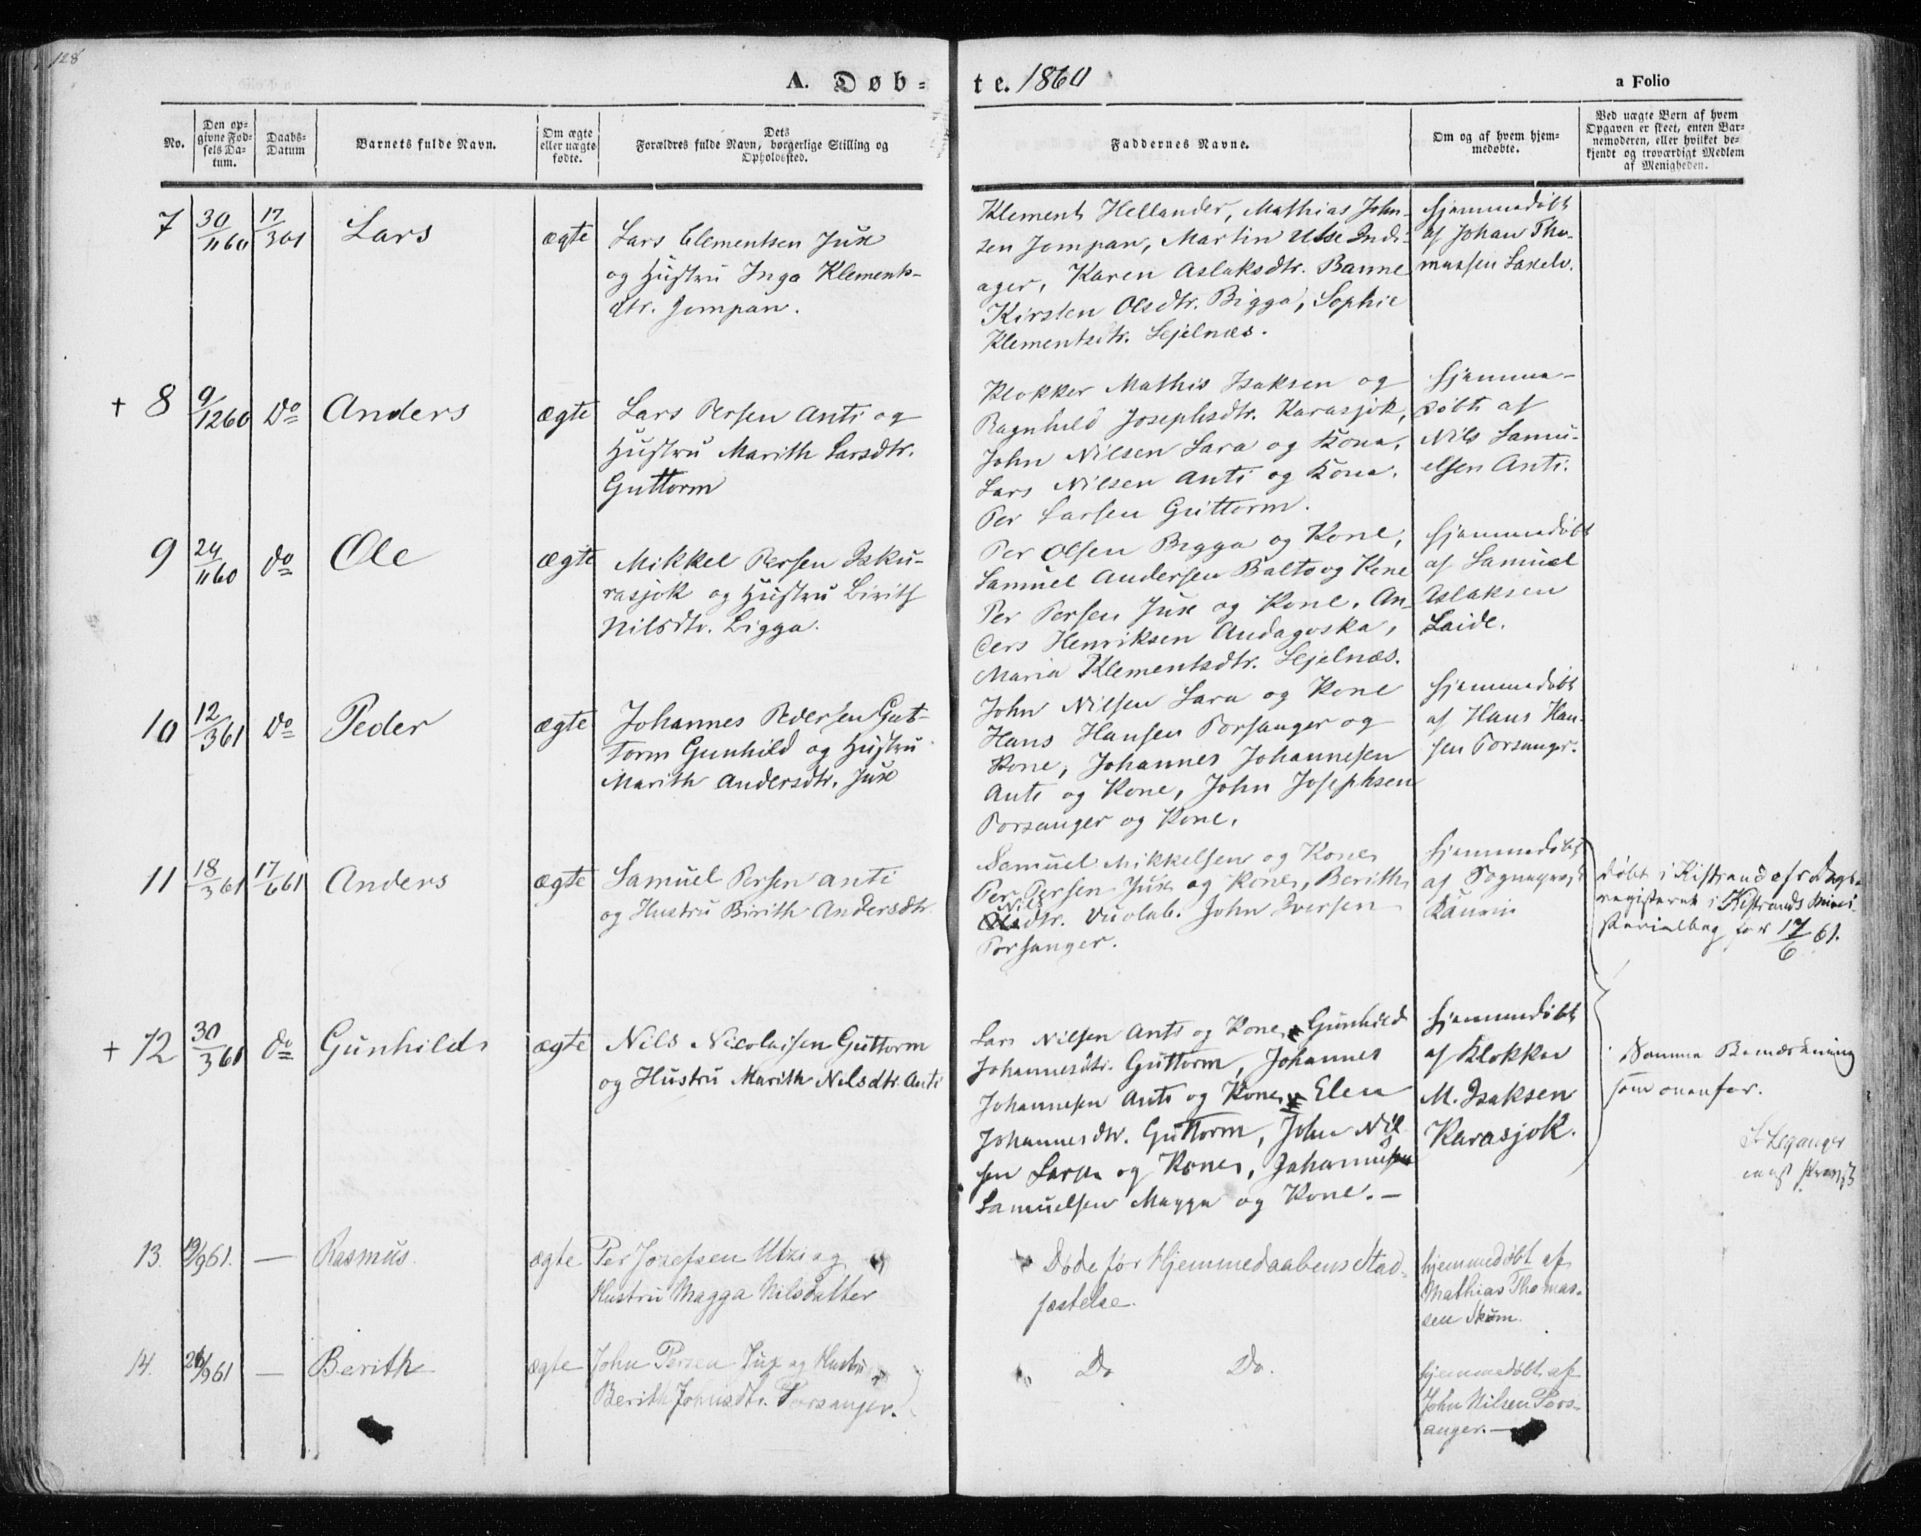 128
A. Døb-
te. 1860
a Folio
No.
Den op-
givne Fød-
sels Da-
tum.
Daabs-
Datum
Barnets fulde Navn.
Om ægte
eller uægte
fødte.
Dets
Forældres fulde Navn, borgerlige Stilling og
Opholdssted.
Faddernes Navne.
Om og af hvem hjem-
medøbte.
Ved uægte Børn af hvem
Opgaven er skeet, enten Bar-
nemoderen, eller hvilket be-
kjendt og troværdigt Medlem
af Menigheden.
7 30/1160 17/361 Lars ægte
Lars Clementsen Jux
og Hustru Inga Klements-
dtr. Jompan.
Klement Hellander, Mathias John-
sen Jompan, Martin Utse
ager, Karen Aslaksdtr. Banne
Kirsten Olsdtr. Bigga, Sophie
Klementsdtr. Sejelnæs.
hjemmedøbt
af Johan Tho-
massen Laxelv.
+ 8 9/1260 Do Anders ægte
Lars Persen Anti og
Hustru Marith Larsdtr.
Guttorm
Klokker Mathis Isaksen og
Ragnhild Josephsdtr. Karasjok,
John Nilsen Sara og Kone,
Lars Nilsen Anti og Kone.
Per Larsen Guttorm.
hjemme-
døbt af
Nils Samu-
elsen Anti.
9 24/1160 do Ole ægte
Mikkel Persen Isku-
rasjok og Hustru Birith
Nilsdtr. Bigga.
Per Olsen Bigga og Kone,
Samuel Andersen Balto og Kone
Per Persen Jux og Kone. An-
ders Henriksen Andagoska,
Maria Klementsdtr. Sejelnæs.
hjemmedøbt
af Samuel
Aslaksen
Laide.
10 12/361 Do Peder ægte
Johannes Pedersen Gut-
torm Gunhild og Hustru
Marith Andersdtr. Jux
John Nilsen Sara og Kone
Hans Hansen Porsanger og
Kone, Johannes Johannesen
Anti og Kone, John Josephsen
Porsanger og Kone.
hjemmedøbt
af Hans Han-
sen Porsanger.
11 18/361 17/661 Anders ægte
Samuel Persen Anti
og Hustru Birith Andersdtr.
Samuel Mikkelsen og Kone
Per Persen Jux og Kone, Berith
Nils
dtr. Vuolab. John Iversen
Porsanger.
hjemmedøbt
af Sognepræst
døbt i Kistrand
registeret i Kistrands Mini-
sterialbog for 17/6 61.
+ 12 30/361 do Gunhild ægte
Nils Nicolaisen Guttorm
og Hustru Marith Nilsdtr. Anti
Lars Nilsen Anti og Kone, Gunhild
Johannesdtr. Guttorm, Johannes
Johannesen Anti og Kone, Elen
Johannesdtr. Guttorm, John Nil-
sen og Kone, Johannesen
Samuelsen Magga og Kone. —
hjemmedøbt
af Klokker
M. Isaksen
Karasjok.
Samme Bemærkning
som ovenfor.
13. 19/961. — Rasmus. ægte
Per Josefsen Utzi og
Hustru Magga Nilsdatter
Døde før Hjemmedaabens Stad-
fæstelse.
hjemmedøbt af
Mathias Thomas-
sen Skum.
14. 24/961 — Berith ægte
John Persen Jux og Hustru
Berith Johnsdtr. Porsanger.
Do Do.
hjemmedøbt af
John Nilsen Pors-
anger. —